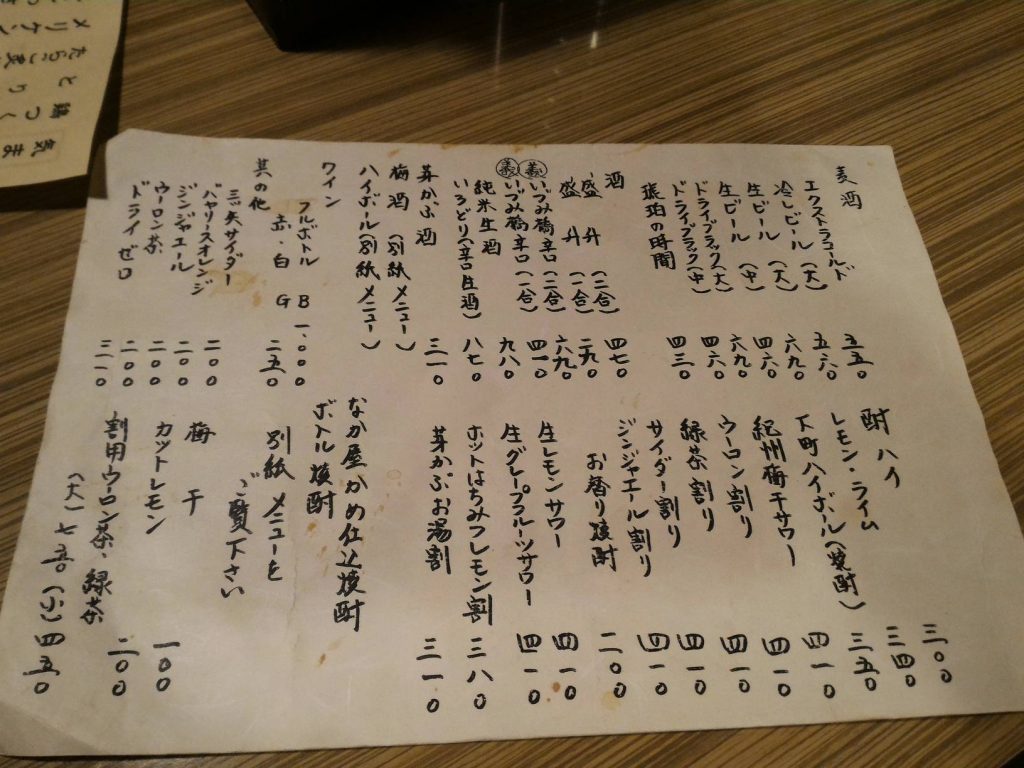 麦酒
エクストラコールド 五五〇
冷しビール（大） 五六〇
生ビール（大） 六九〇
生ビール（中） 四六〇
ドライブラック（大） 六九〇
ドライブラック（中） 四六〇
琥珀の時間 四三〇
酒
盛升（二合） 四七〇
盛升（一合） 二九〇
いづみ橋辛口（二合） 六九〇
いづみ橋辛口（一合） 四一〇
純米生酒 九八〇
いろどり（辛口生酒） 八七〇
芽かぶ酒 三一〇
梅酒（別紙メニュー）
ハイボール（別紙メニュー）
ワイン
フルボトル B 一、〇〇〇
赤・白 G 二五〇
其の他
三ツ矢サイダー 二〇〇
バヤリースオレンジ 二〇〇
ジンジャエール 二〇〇
ウーロン茶 二〇〇
ドライゼロ 三一〇
酎ハイ 三〇〇
レモン・ライム 三四〇
下町ハイボール（焼酎） 三五〇
紀州梅干サワー 四一〇
ウーロン割り 四一〇
緑茶割り 四一〇
サイダー割り 四一〇
ジンジャエール割り 四一〇
お替り焼酎 二〇〇
生レモンサワー 四一〇
生グレープフルーツサワー 四一〇
ホットはちみつレモン割 三八〇
芽かぶお湯割 三一〇
なか屋かめ仕込焼酎
ボトル焼酎
別紙メニューを
ご覧下さい
梅干 一〇〇
カットレモン 二〇〇
割用ウーロン茶・緑茶
（大）七五〇（小）四五〇